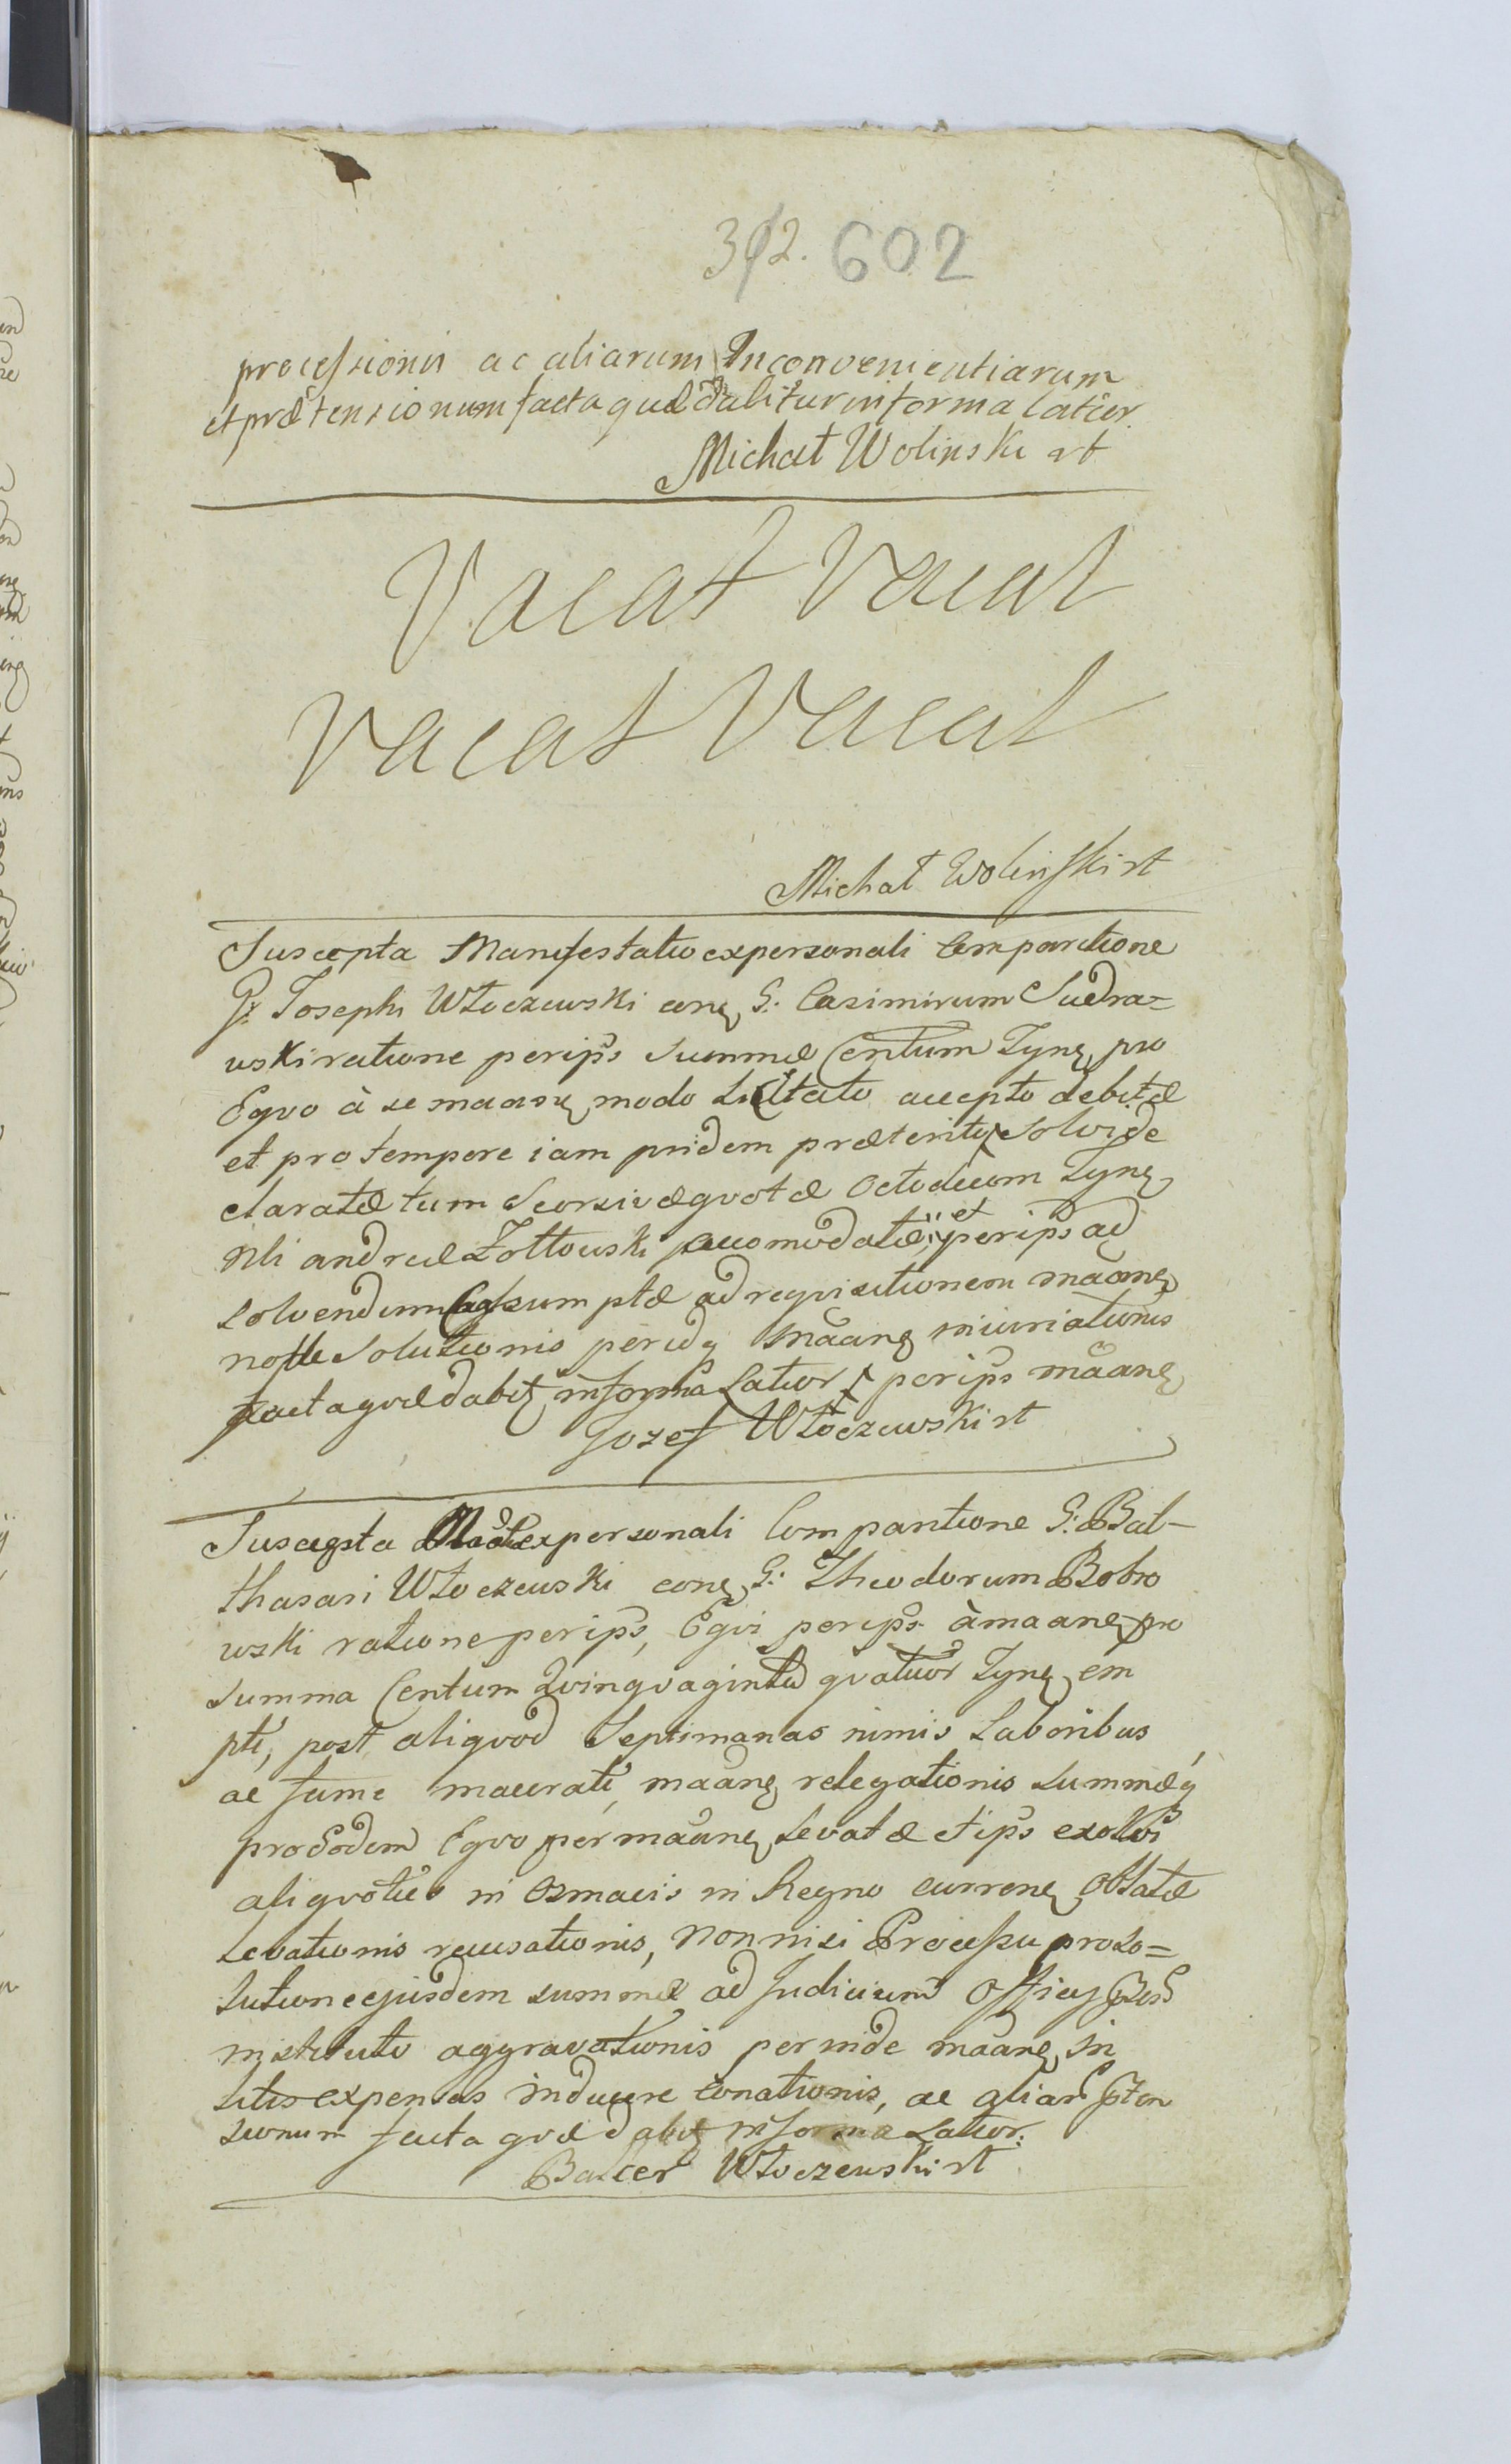 392. 602
processionis ac aliarum Inconvenientiarum
et prætensionum facta quæ dabitur in forma latior.
Michał Wolinski st
Vacat Vacat
Vacat Vacat
Michał Wolinski st
Suscepta Manifestatio ex personali Comparitione
G: Joseph Włoczewski conę G: Casimirum Sudra=
wski ratione perips summæ Centum Tynę pro
Eqvo à se maarę modo Licitato accepto debitæ
et pro tempore iam pridem præterito solvi de
claratæ tum Seorsivæ qvotæ Octodecem Tynę
Nli andreæ Zołtowski accomodatæ, et perips ad
solvendum assumptæ ad reqvisitionem maanę
nolle solutionis peridq maanę iniuriationis
facta qvæ dabitę in forma Latior perips maanę
Jozef Włoczewski st
Suscepta ex personali Comparitione G: Bal-
thasari Włoczewski conę G: Theodorum Bobro
wski ratione perips, Eqvi perips à maanę pro
summa Centum Qvinqvaginta qvatuor Tynę em
pti, post aliqvod Septimanas nimis Laboribus
ac fame macerati, maanę relegationis summæq
pro Eodem Eqvo per maanę Levatæ et ips
aliqvoties in in Regno currenę oblatæ
Levationis recusationis, non nisi Processu pro so=
lutione ejusdem summæ ad Judicium Officy
instituto aggravationis per inde maanę in
Litis expensas inducere conationis, ac aliar pten
sionum facta qvæ dabitę in forma Latior.
Balcer Włoczewski st